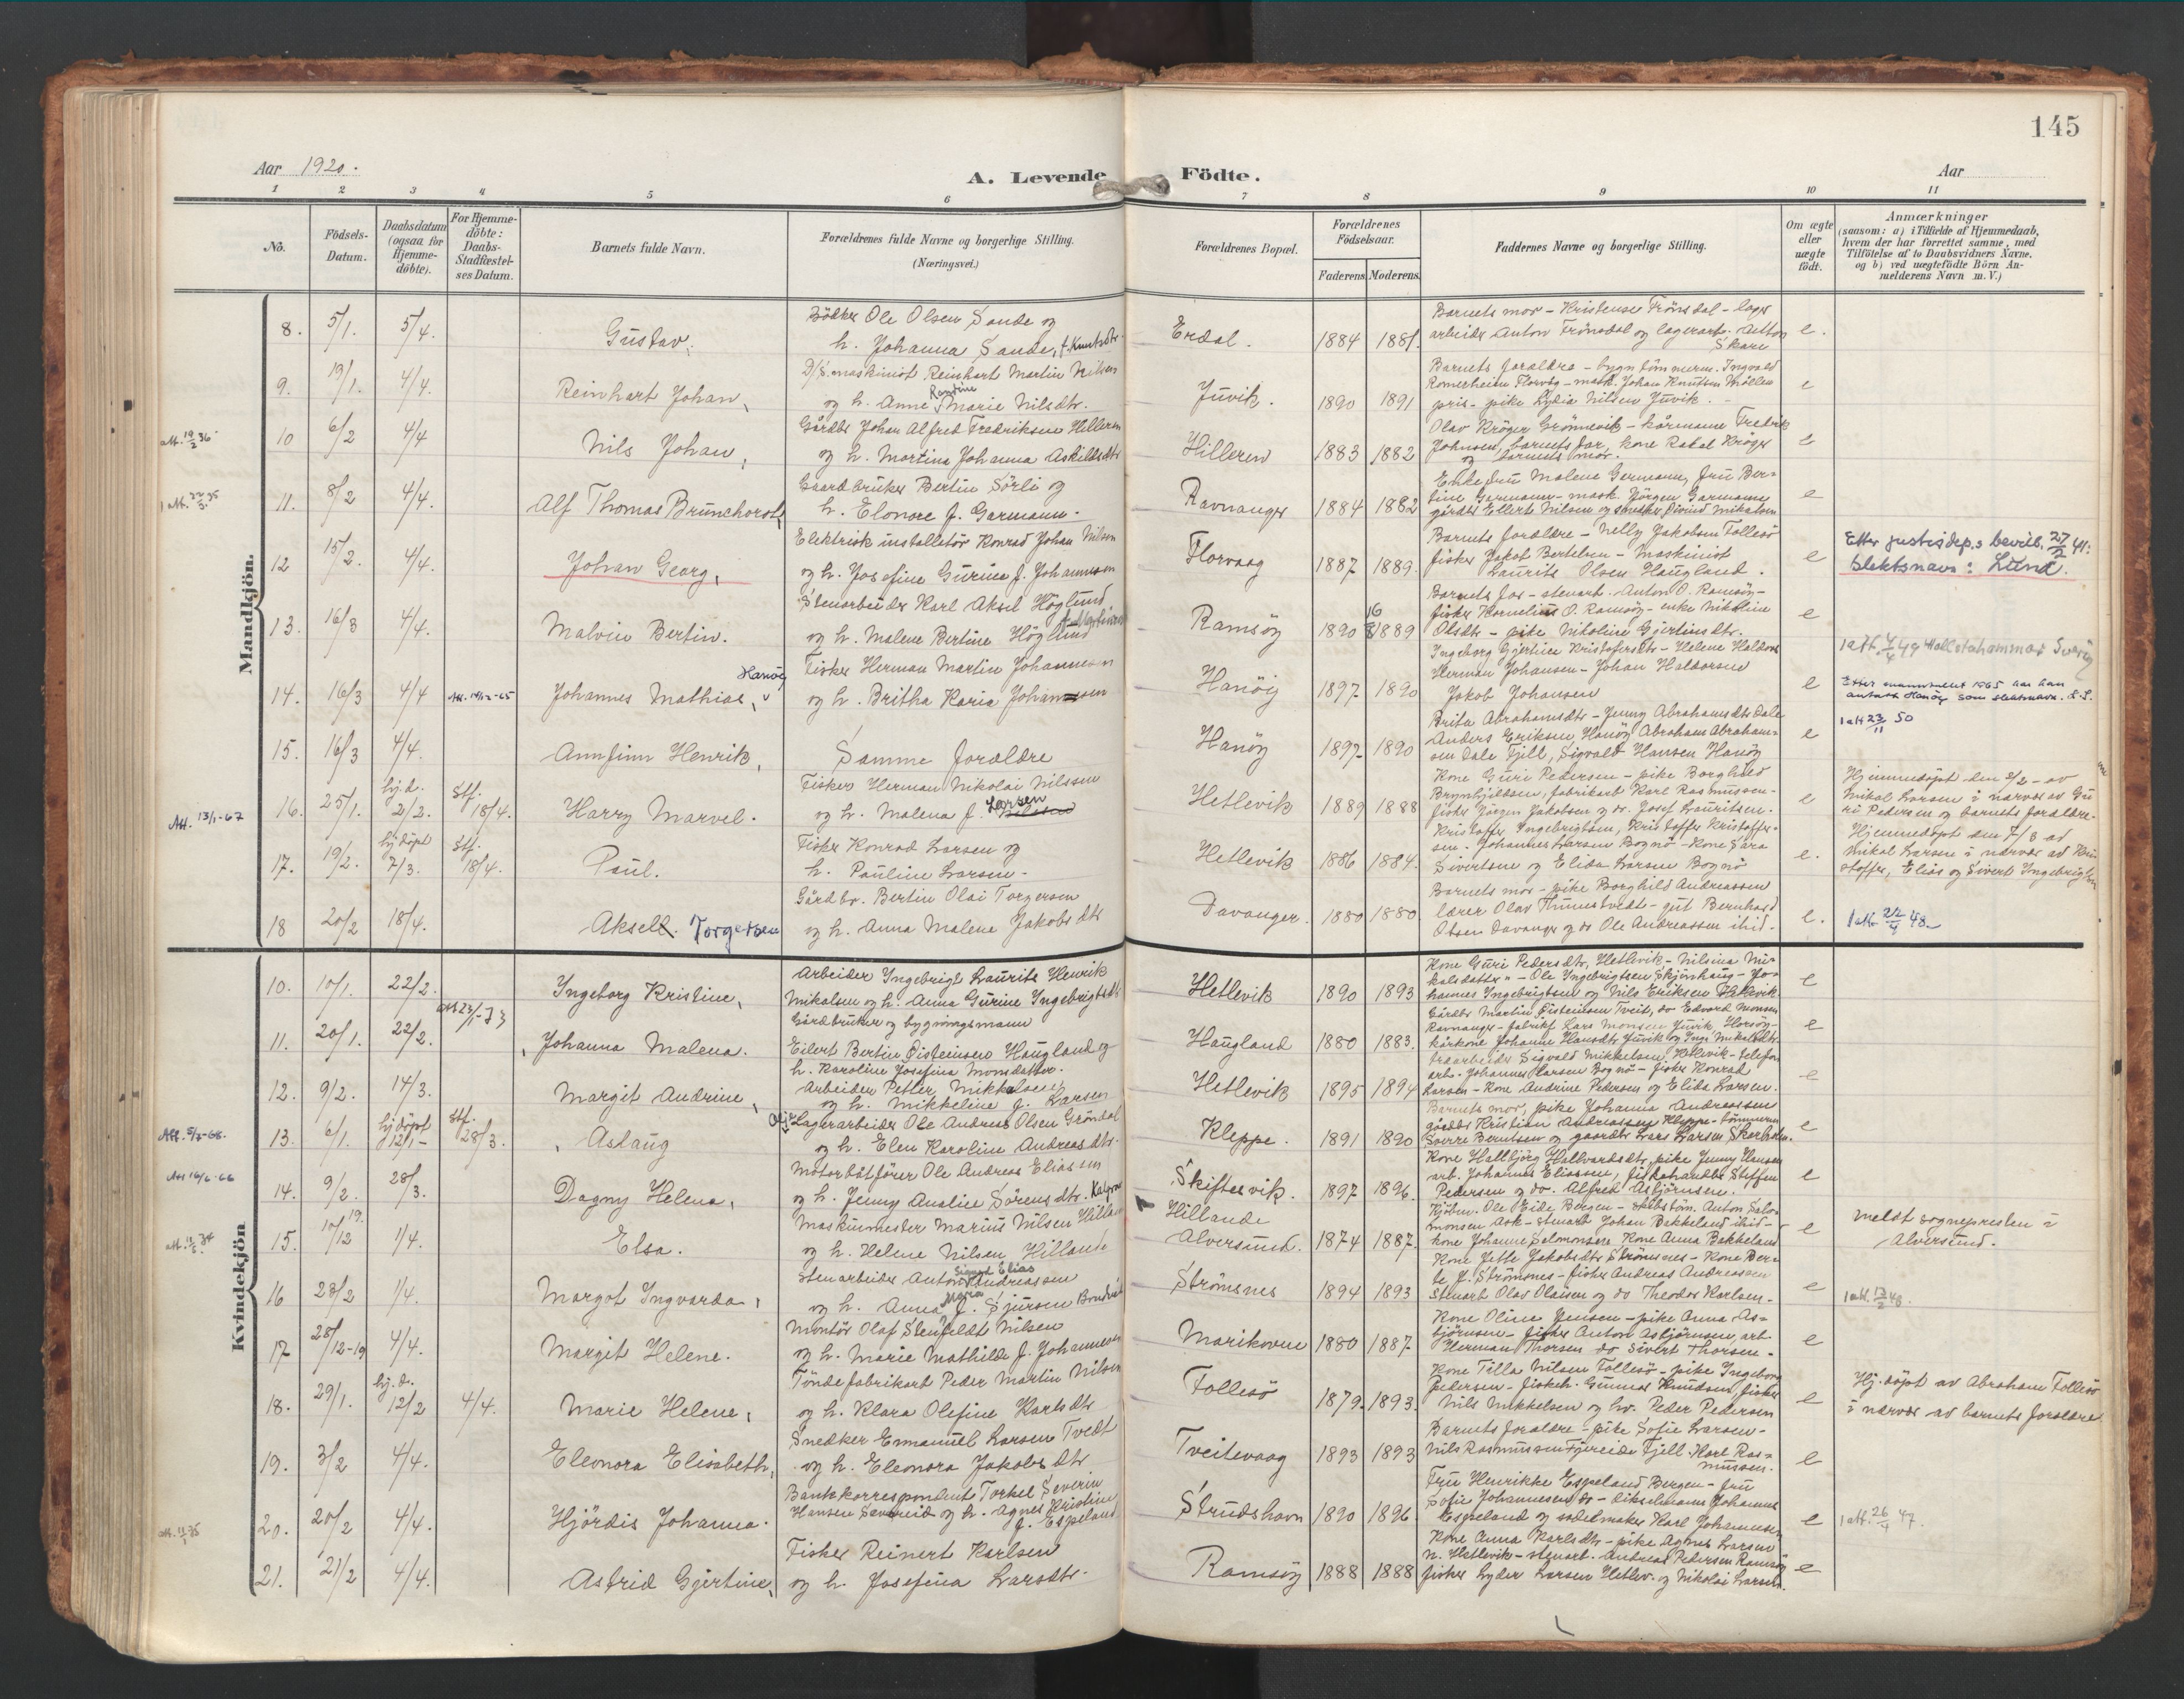 145
Aar 1920.
A. Levende Födte.
Aar
1 2 3 4 5 6 7 8 9 10 11
No.
Födsels-
Datum.
Daabsdatum
(ogsaa for
Hjemme-
döbte).
For Hjemme-
döbte:
Daabs-
Stadfæstel-
ses Datum.
Barnets fulde Navn.
Forældrenes fulde Navne og borgerlige Stilling.
(Næringsvei.)
Forældrenes Bopæl.
Forældrenes
Födselsaar.
Faderens. Moderens.
Faddernes Navne og borgerlige Stilling.
Om ægte
eller
uægte
födt.
Anmærkninger
(saasom: a) i Tilfælde af Hjemmedaab,
hvem der har forrettet samme, med
Tilföielse af to Daabsvidners Navne,
og b) ved uægtefödte Börn An-
melderens Navn m. V.)
Mandkjön.
8. 5/1. 5/4. Gustav.
Bödker Ole Olsen Sande og
h. Johanna Sande, f. Knutsdtr.
Erdal. 1884 1881.
Barnets mor - Kristense Trönsdal - lager
arbeider Anton Trönsdal og lagerarb. Anton
Skare
e.
9. 19/1. 4/4. Reinhart Johan,
D/S. maskinist Reinhart Martin Nilsen
og h. Anne Marie Nilsdtr.
Juvik. 1890 1891
Barnets foraldre - bygn tömmerm. Ingvald
Romerheim Florvåg - mask. Johan Knutsen Möllen
pris - pike Lydia Nilsen Juvik.
e
att. 19/2 36
10 6/2 4/4 Nils Johan,
Gårdbr Johan Alfred Fredriksen Hilleren
og h. Martina Johanna Askildsdtr
Hilleren 1883 1882
Olav Kröger Grönnevik - kårmann Fredrik
Johnsen, barnets far, kone Rakel Kröger
og barnets mor.
e
11. 8/2 4/4. Alf Thomas Brunchorst,
Gaardbruker Bertin Sörli og
h. Elonore f. Garmann.
Ravnanger 1884 1882
Enkefru Malene Germann, fru Ber-
tine Garmann - mask. Jörgen Garmann
gårdbr Ellert Nilsen og smeder Öivind Mikalsen
e
12 15/2. 4/4. Johan Georg,
Elektrisk installetör Konrad Johan Nilsen
og h. Josefine Gurine f. Johannesen
Florvaag 1887 1889.
Barnets foraldre - Nelly Jakobsen Follesö
fisker Jakob Bertelsen - maskinist
Laurits Olsen Haugland.
e
Etter justisdep.s bevilb. 27/2 41:
slektsnavn: Lund.
13. 16/3 4/4. Malvin Bertin.
Stenarbeider Karl Aksel Höglund
og h. Malene Bertine Höglund
Ramsöy 1890 1889
Barnets far - stenarb. Anton O. Ramsöy -
fisker Kornelius O. Ramsöy - enke Nikoline
Olsdtr - pike Nikoline Gjertinsdtr.
e
1 att. 4/4 49 Hallstahammar Sverig
14. 16/3 4/4 Johannes Mathias, Hanöy
Fisker Herman Martin Johannesen
og h. Britha Karia Johannssen
Hanöig 1897 1890
Ingeborg Gjertine Kristofersdtr - Helene Haldors
Herman Johansen - Johan Haldorsen
Jakob Johansen
e
15. 16/3 4/4. Annfinn Henrik,
Samme foraldre
Hanöy 1897 1890
Brita Abrahamsdtr - Jenny Abrahamsdtr Dale
Anders Eriksen Hanöy Abraham Abraham-
sen Dale Fjell, Sigvald Hansen Hanöy
e
1 att 23/11 50
16. 25/1. hj.d. 2/2. Stf. 18/4. Harry Marvel.
Fisker Herman Nikolai Nilssen
og h. Malena f. Larsen
Hetlevik 1889 1888
Kone Guri Pedersen - pike Borghild
Brynhjeldsen, fabrikarb Karl Rasmussen -
fisker Jörgen Jakobsen og do. Josef Lauritsen.
e
Hjemmedöpt den 2/2 - av
Mikal Larsen i nærver av Gu
ri Pedersen og barnets foraldre.
Att. 13/1-67
17. 19/2. hj.döpt 7/3. Stf. 18/4. Paul.
Fisker Konrad Larsen og
h. Pauline Larsen -
Hetlevik 1886 1884.
Kristoffer Ingebrigtsen, Kristoffer Kristoffer-
sen - Johannes Larsen Bognö - Kone Sara
Sivertsen og Elida Larsen Bognö
e.
Hjemmedöpt den 7/3 av
Mikal Larsen i nærvær av Kri
stoffer, Elias og Sivert Ingebrigtsen
18 20/2 18/4. Aksel. Torgersen
Gårdbr. Bertin Olai Torgersen
og h. Anna Malene Jakobsdtr
Davanger. 1880 1880.
Barnets mor - pike Borghild Andreassen
lærer Olav Thunestvedt - gut Bernhard
Olsen Davanger og do Ole Andreassen ibid.
e.
1 att. 22/4 48
Kvindekjön
10. 10/1. 22/2. Ingeborg Kristine,
Arbeider Ingebrigt Laurits Henrik
Nikolsen og h. Anna Gurine Ingebrigtsdtr
Hetlevik 1890 1893
Kone Guri Pedersdtr, Hetlevik - Nilsina Ni-
kolsdatter - Ole Ingebrigtsen Skjenhaug - Jo-
hannes Ingebrigtsen og Nils Eriksen Hetlevik.
e
11. 20/1. 22/2. Johanna Malena.
Gårdbruker og bygningsmann
Eilert Bertin Öisteinsen Haugland og
h. Karoline Josefina Monsdatter.
Haugland 1880 1883.
Gårdbr Martin Öisteinsen Tveit, do Edvard Monsen
Ravnanger - fabrikf Lars Monsen Juvik, Horsöy -
kårkone Johanne Hansdtr Juvik og
e
12. 9/2. 14/3. Margit Andrine,
Arbeider Petter Mikkelsen
og h. Mikkeline f. Larsen
Hetlevik 1895 1894
Sigvald Mikkelsen, Hetlevik - telefon
arb. Johannes Larsen Bognö - fisker Konrad
Larsen - kone Andrine Pedersen og Elida Larsen.
e
13. 6/1. hj.döpt 12/1- Stf. 28/3. Aslaug
Lagerarbeider Ole Andreas Olsen Gröndal
og h. Elen Karoline Andreasdtr.
Kleppe. 1891 1890
Barnets mor, pike Johanna Andreassen
gårdbr Kristian Andreassen Kleppe - tömmerm
Sverre Berntsen og gaardbr Lars Larsen
e
14. 9/2. 28/3. Dagny Helena,
Motorbåtförer Ole Andreas Eliassen
og h. Jenny Analine Sörensdtr.
Skiftesvik. 1897 1896.
Kone Hallbjörg Hallvardsdtr, pike Jenny Hansen
arb. Johannes Eliassen, fiskehandler Steffen
Pedersen og do. Alfred Asbjörnsen.
e
15. 10/12 19. 1/4. Elsa.
Maskinmester Marius Nilsen Hilland
og h. Helene Nilsen Hillande
Hillande
Alversund. 1874 1887.
Kjöbm. Ole Eide Bergen - Anton Salo-
monsen Ask - stenarb Johan Bakkeland ibid -
kone Johanne Salomonsen Kone Anna Bakkeland
e
Meldt sognepresten i
Alversund.
16 28/2 1/4. Margot Ingvarda,
Stenarbeider Anton Sigurd Elias Andreassen
og h. Anna Maria f. Sjursen
Strömsnes 1894 1893
Kone Jette Jakobsdtr Strömsnes - Kone Ber-
te J. Strömsnes - fisker Andreas Andreassen
stenarb Olav Olaisen og do Theodor Karlsen -
e
17 28/12-19 4/4. Margit Helene.
Montör Olaf Stenfeldt Nilsen
og h. Marie Mathilde f. Johannesen
Marikovene 1880 1887.
Kone Oline Jensen - pike Anna As-
björnsen - fisker Anton Asbjörnsen, arb.
Herman Thorsen do Sivert Thorsen -
e
18. 29/1. hj.d. 12/2 4/4. Marie Helene,
Töndefabrikarb Peder Martin Nilsen
og h. Klara Olefine Karlsdtr
Follesö 1879. 1893.
Kone Tilla Nilsen Follesö - pike Ingeborg
Pedersen - fiskeh. Gunnar Knudsen, fisker
Nils Mikkelsen og hr. Peder Pedersen
e
Hj. döpt av Abraham Follesö
i nærvær av barnets foraldre
19. 3/2 4/4. Eleonora Elisabeth,
Snedker Emanuel Larsen Tvedt
og h. Eleonora Jakobsdtr
Tveitevaag 1893 1893
Barnets foraldre - pike Sofie Larsen -
Nils Rasmussen Fjereide Fjell. Karl Ras-
mussen.
e
20. 20/2 4/4. Hjördis Johanna.
Bankkorrespondent Torkel Severin
Hansen og h. Agnes Kristine
f. Espeland
Strudshavn 1890 1896.
Fru Henrikke Espeland Bergen - fru
Sofie Johannesen do - Johannes
Espeland og sadelmaker Karl Johannesen
e
1 att. 26/4 47.
21. 21/2 4/4. Astrid Gjertine,
Fisker Reinert Karlsen
og h. Josefina Larsdtr.
Ramsöy 1888 1888
Kone Anna Karlsdtr - pike Agnes Larsen
N. Hetlevik - stenarb. Andreas Pedersen Ramsöy
fisker Lyder Larsen Hetlev. og Nikolai Larsen.
e